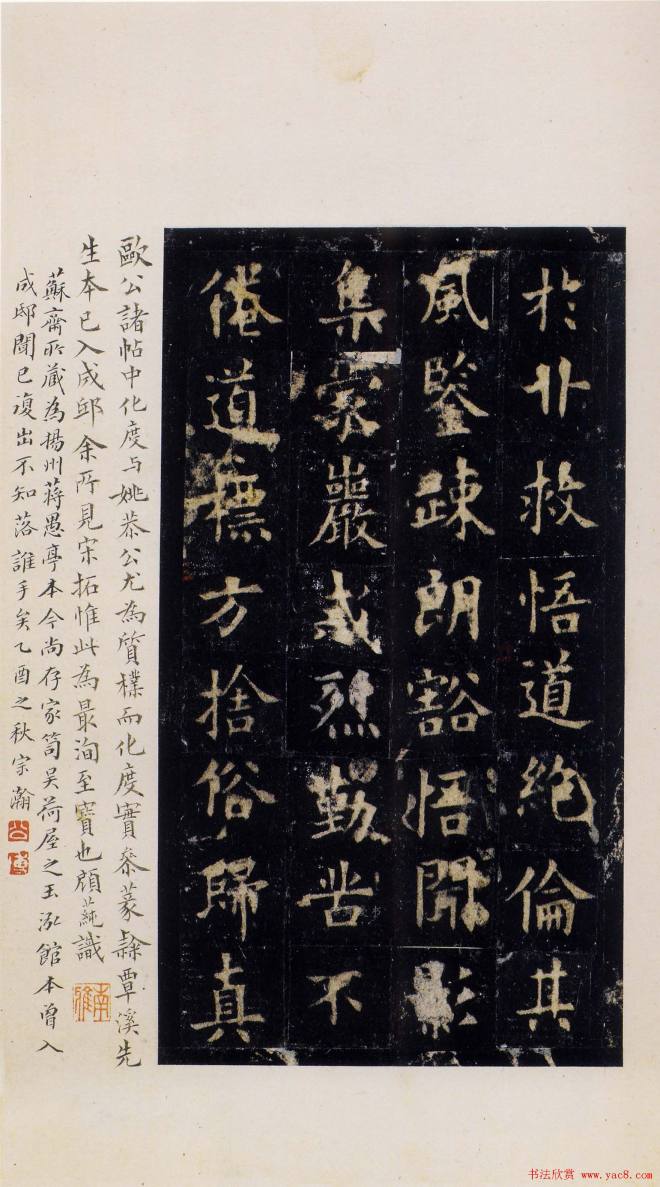 於廾救悟道絶倫其
風鑒疎朗豁悟開影
集家巖感烈勤苦不
倦道摽方捨俗歸真
歐公諸帖中化度与姚恭公尤為質樸而化度實叅篆隸覃溪先
生本已入成邸余所見宋拓惟此為最洵至寶也顧蒓識
南雅
蘇齋所藏為揚州蔣愚亭本今尚存家笥吴荷屋之玉泓館本曾入
成邸聞已復出不知落誰手矣乙酉之秋宗瀚
公博
书法欣赏 www.yac8.com